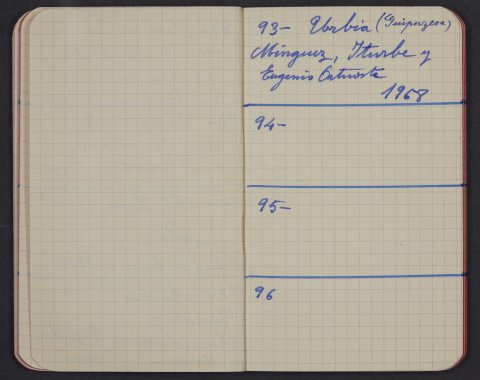 93- Urbia (Guipuzcoa)
Minguez, Iturbe y
Eugenio
1968
94-
95-
96